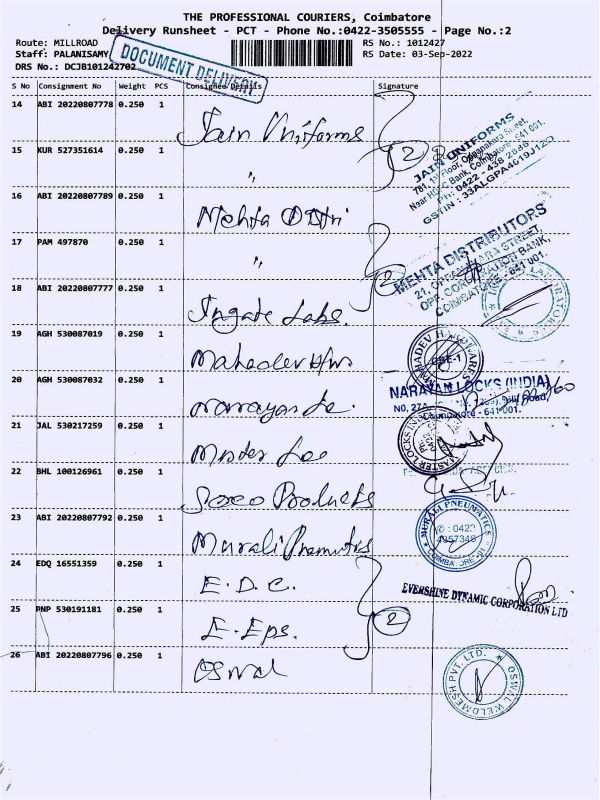 THE PROFESSIONAL COURIERS, Coimbatore
Delivery Runsheet - PCT - Phone No.:0422-3505555 - Page No.:2
Route: MILLROAD
RS No.: 1012427
Staff: PALANISAMY
RS Date: 03-Sep-2022
DRS No.: DCJB101242702
DOCUMENT DELIVERY
S No Consignment No Weight PCS Consignee Details Signature
14 ABI 20220807778 0.250 1 Jain Uniforms
15 KUR 527351614 0.250 1 〃
2
JAIN UNIFORMS
781, 1st Floor, Oppanakara Street,
Near HDFC Bank, Coimbatore - 641 001.
Ph: 0422 - 438 2888
GSTIN : 33ALGPA4619J1ZO
16 ABI 20220807789 0.250 1 Mehta Distri
17 PAM 497870 0.250 1 〃
2
MEHTA DISTRIBUTORS
21, OPPANAKARA STREET,
OPP. CORPORATION BANK,
COIMBATORE - 641 001.
18 ABI 20220807777 0.250 1 Ingate Labs.
LABORATORIES
19 AGH 530087019 0.250 1 Mahadev H/ws
CBE-1
20 AGH 530087032 0.250 1 Narayan Lo.
NARAYAN LOCKS (INDIA)
NO, 27A
Coimbatore - 641 001.
21 JAL 530217259 0.250 1 Master Loc
MASTER LOCKS IND
22 BHL 100126961 0.250 1 Products
23 ABI 20220807792 0.250 1 Murali Pnematics
MURALI PNEUMATICS
✆ : 0422
4957348
COIMBATORE
24 EDQ 16551359 0.250 1 E.D.C.
25 PNP 530191181 0.250 1 E-Eps.
2
EVERSHINE DYNAMIC CORPORATION LTD
26 ABI 20220807796 0.250 1 Oswal
OSWAL WELDMESH PVT. LTD.